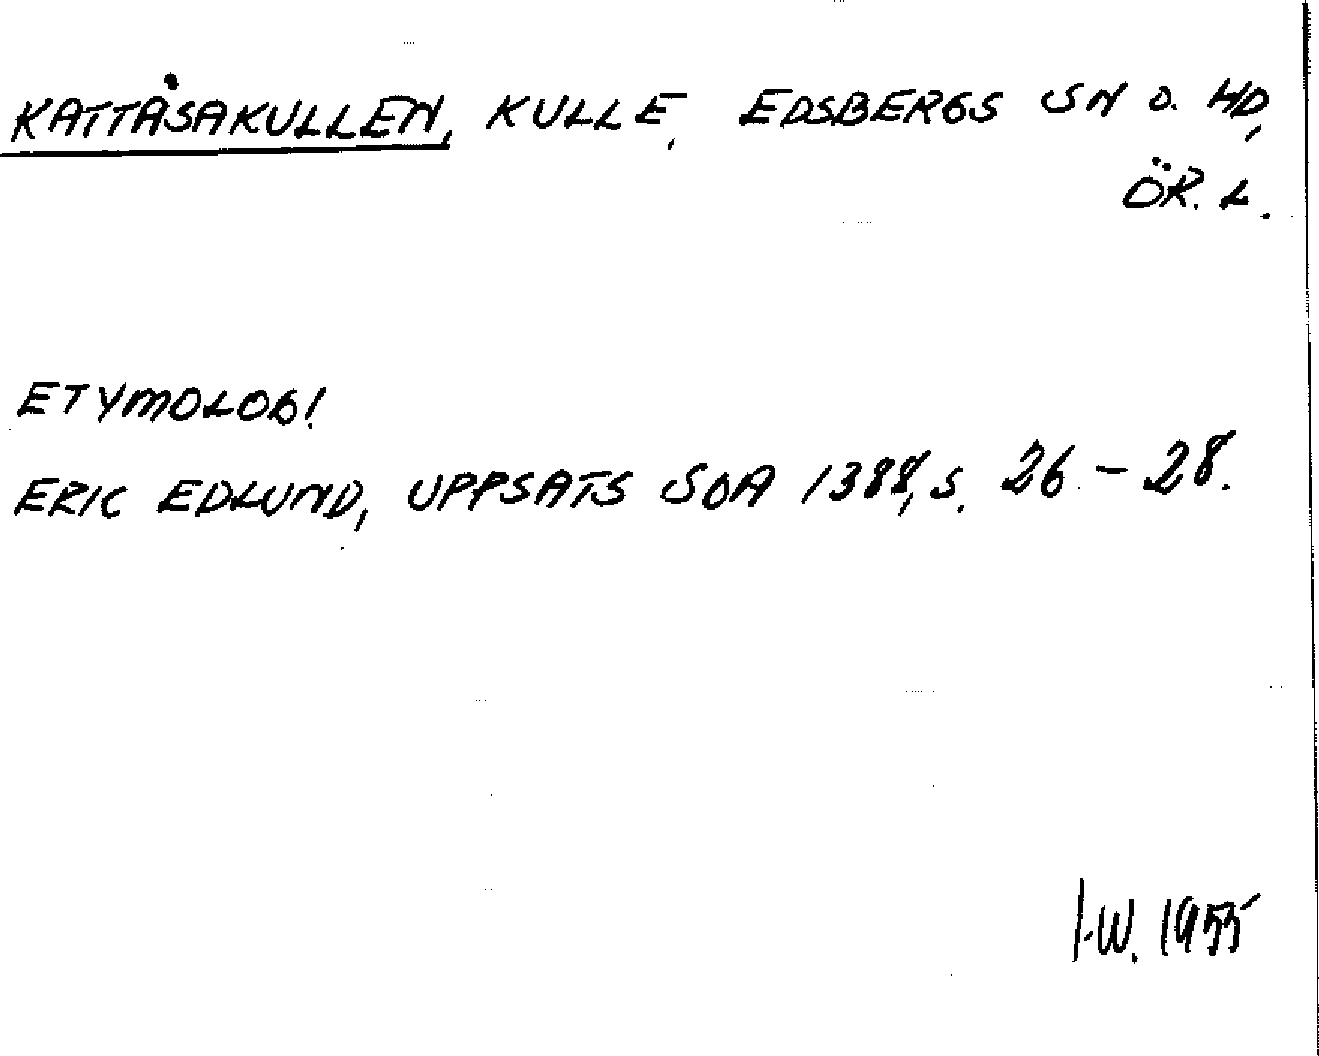 KATTÅSAKULLEN, KULLE, EDSBERGS SN O. HD,
ÖR. L.
ETYMOLOGI
ERIC EDLUND, UPPSATS SOA 1388, S. 26-28.
I.W. 1955